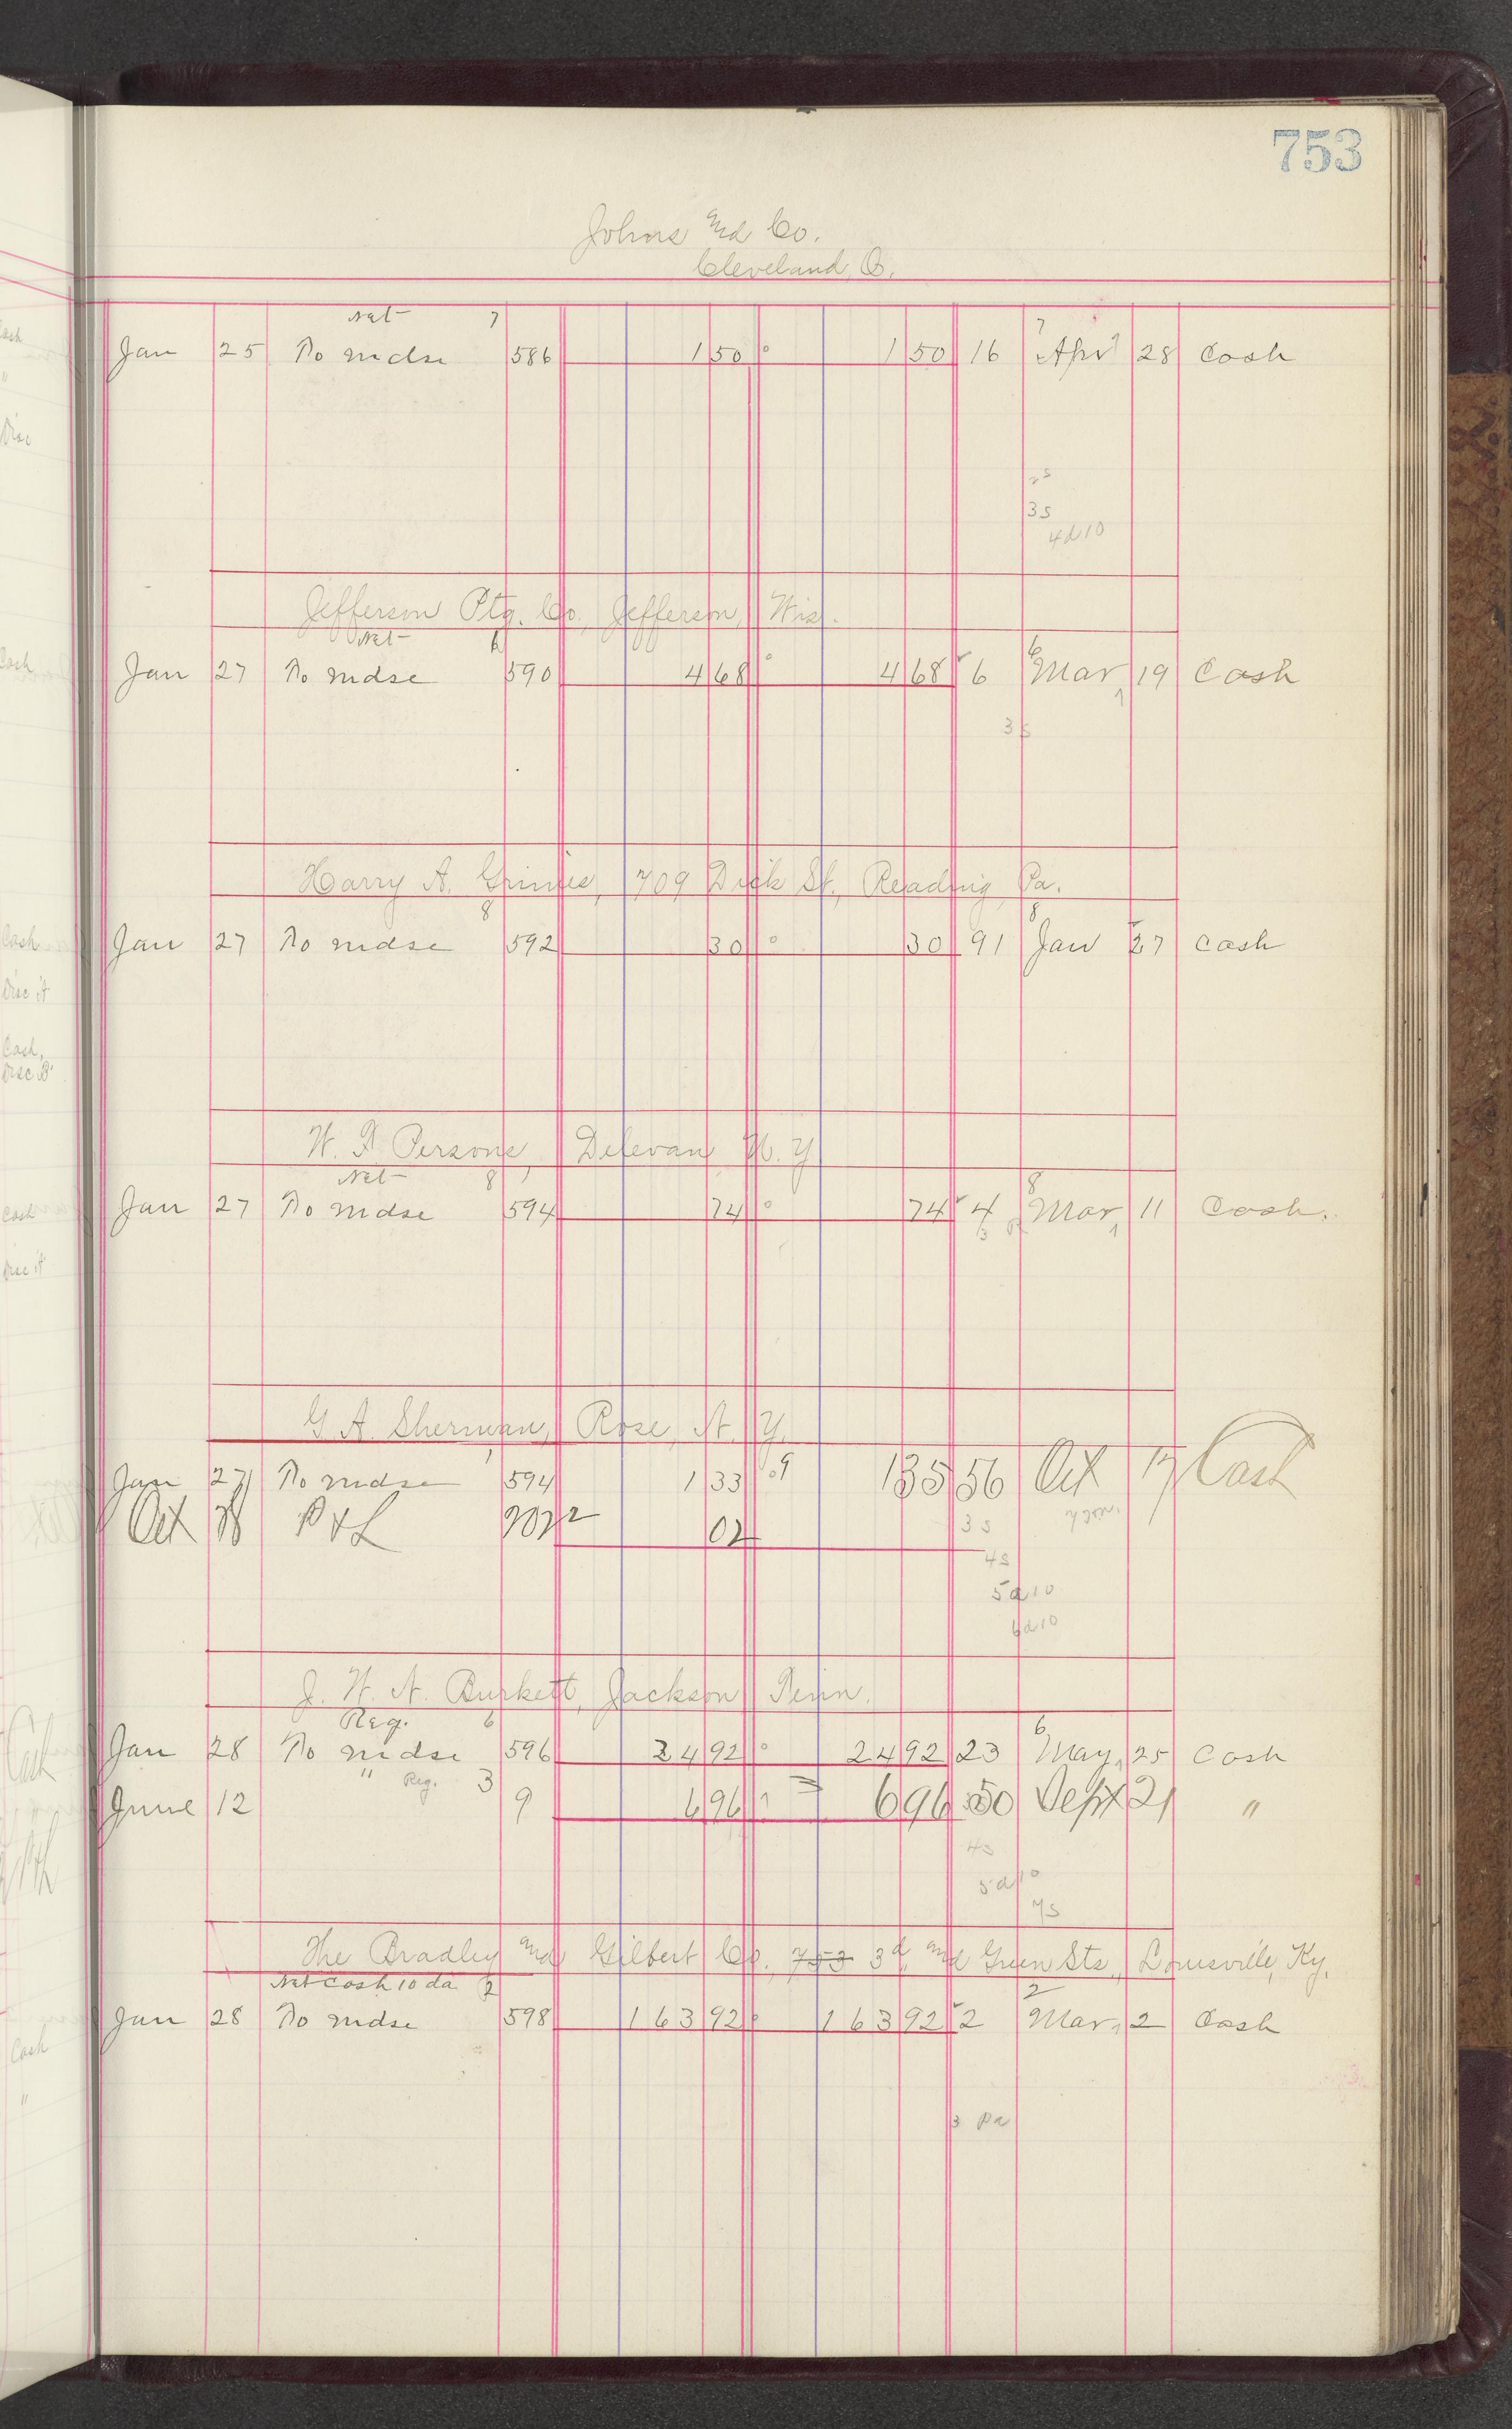 753
Johns and Co.
Cleveland, O.
Net 7 7
Jan 25 To mdse 586 1 50 1 50 16 Apr 28 Cash
3s
4d10
Jefferson Ptg. Co., Jefferson, Wis.
Net 6 6
Jan 27 To mdse 590 4 68 4 68 6 Mar 19 Cash
3s
Harry A. Grimes, 709 Dick St., Reading, Pa.
8 8
Jan 27 To mdse 592 30 30 91 Jan 27 Cash
W. F. Persons, Delevan, N. Y.
Net 8 8
Jan 27 To mdse 594 74 74 4 Mar 11 Cash.
G A. Sherman, Rose, N. Y.
Jan 27 To mdse 594 1 33 135 56 Oct 17 Cash
Oct P & L 02
3s
4s
5d10
6d10
J. W. N. Burkett, Jackson, Tenn.
Reg. 6 6
Jan 28 To mdse 596 24 92 24 92 23 May 25 Cash
" Reg. 3
June 12 9 6 96 6 96 50 Sept 21 "
4s
5d10
7s
The Bradley and Gilbert Co., 753 3d and Green Sts., Louisville, Ky.
Net Cash 10 da 2 2
Jan 28 To mdse 598 163 92 163 92 2 Mar 2 Cash
3 Pa